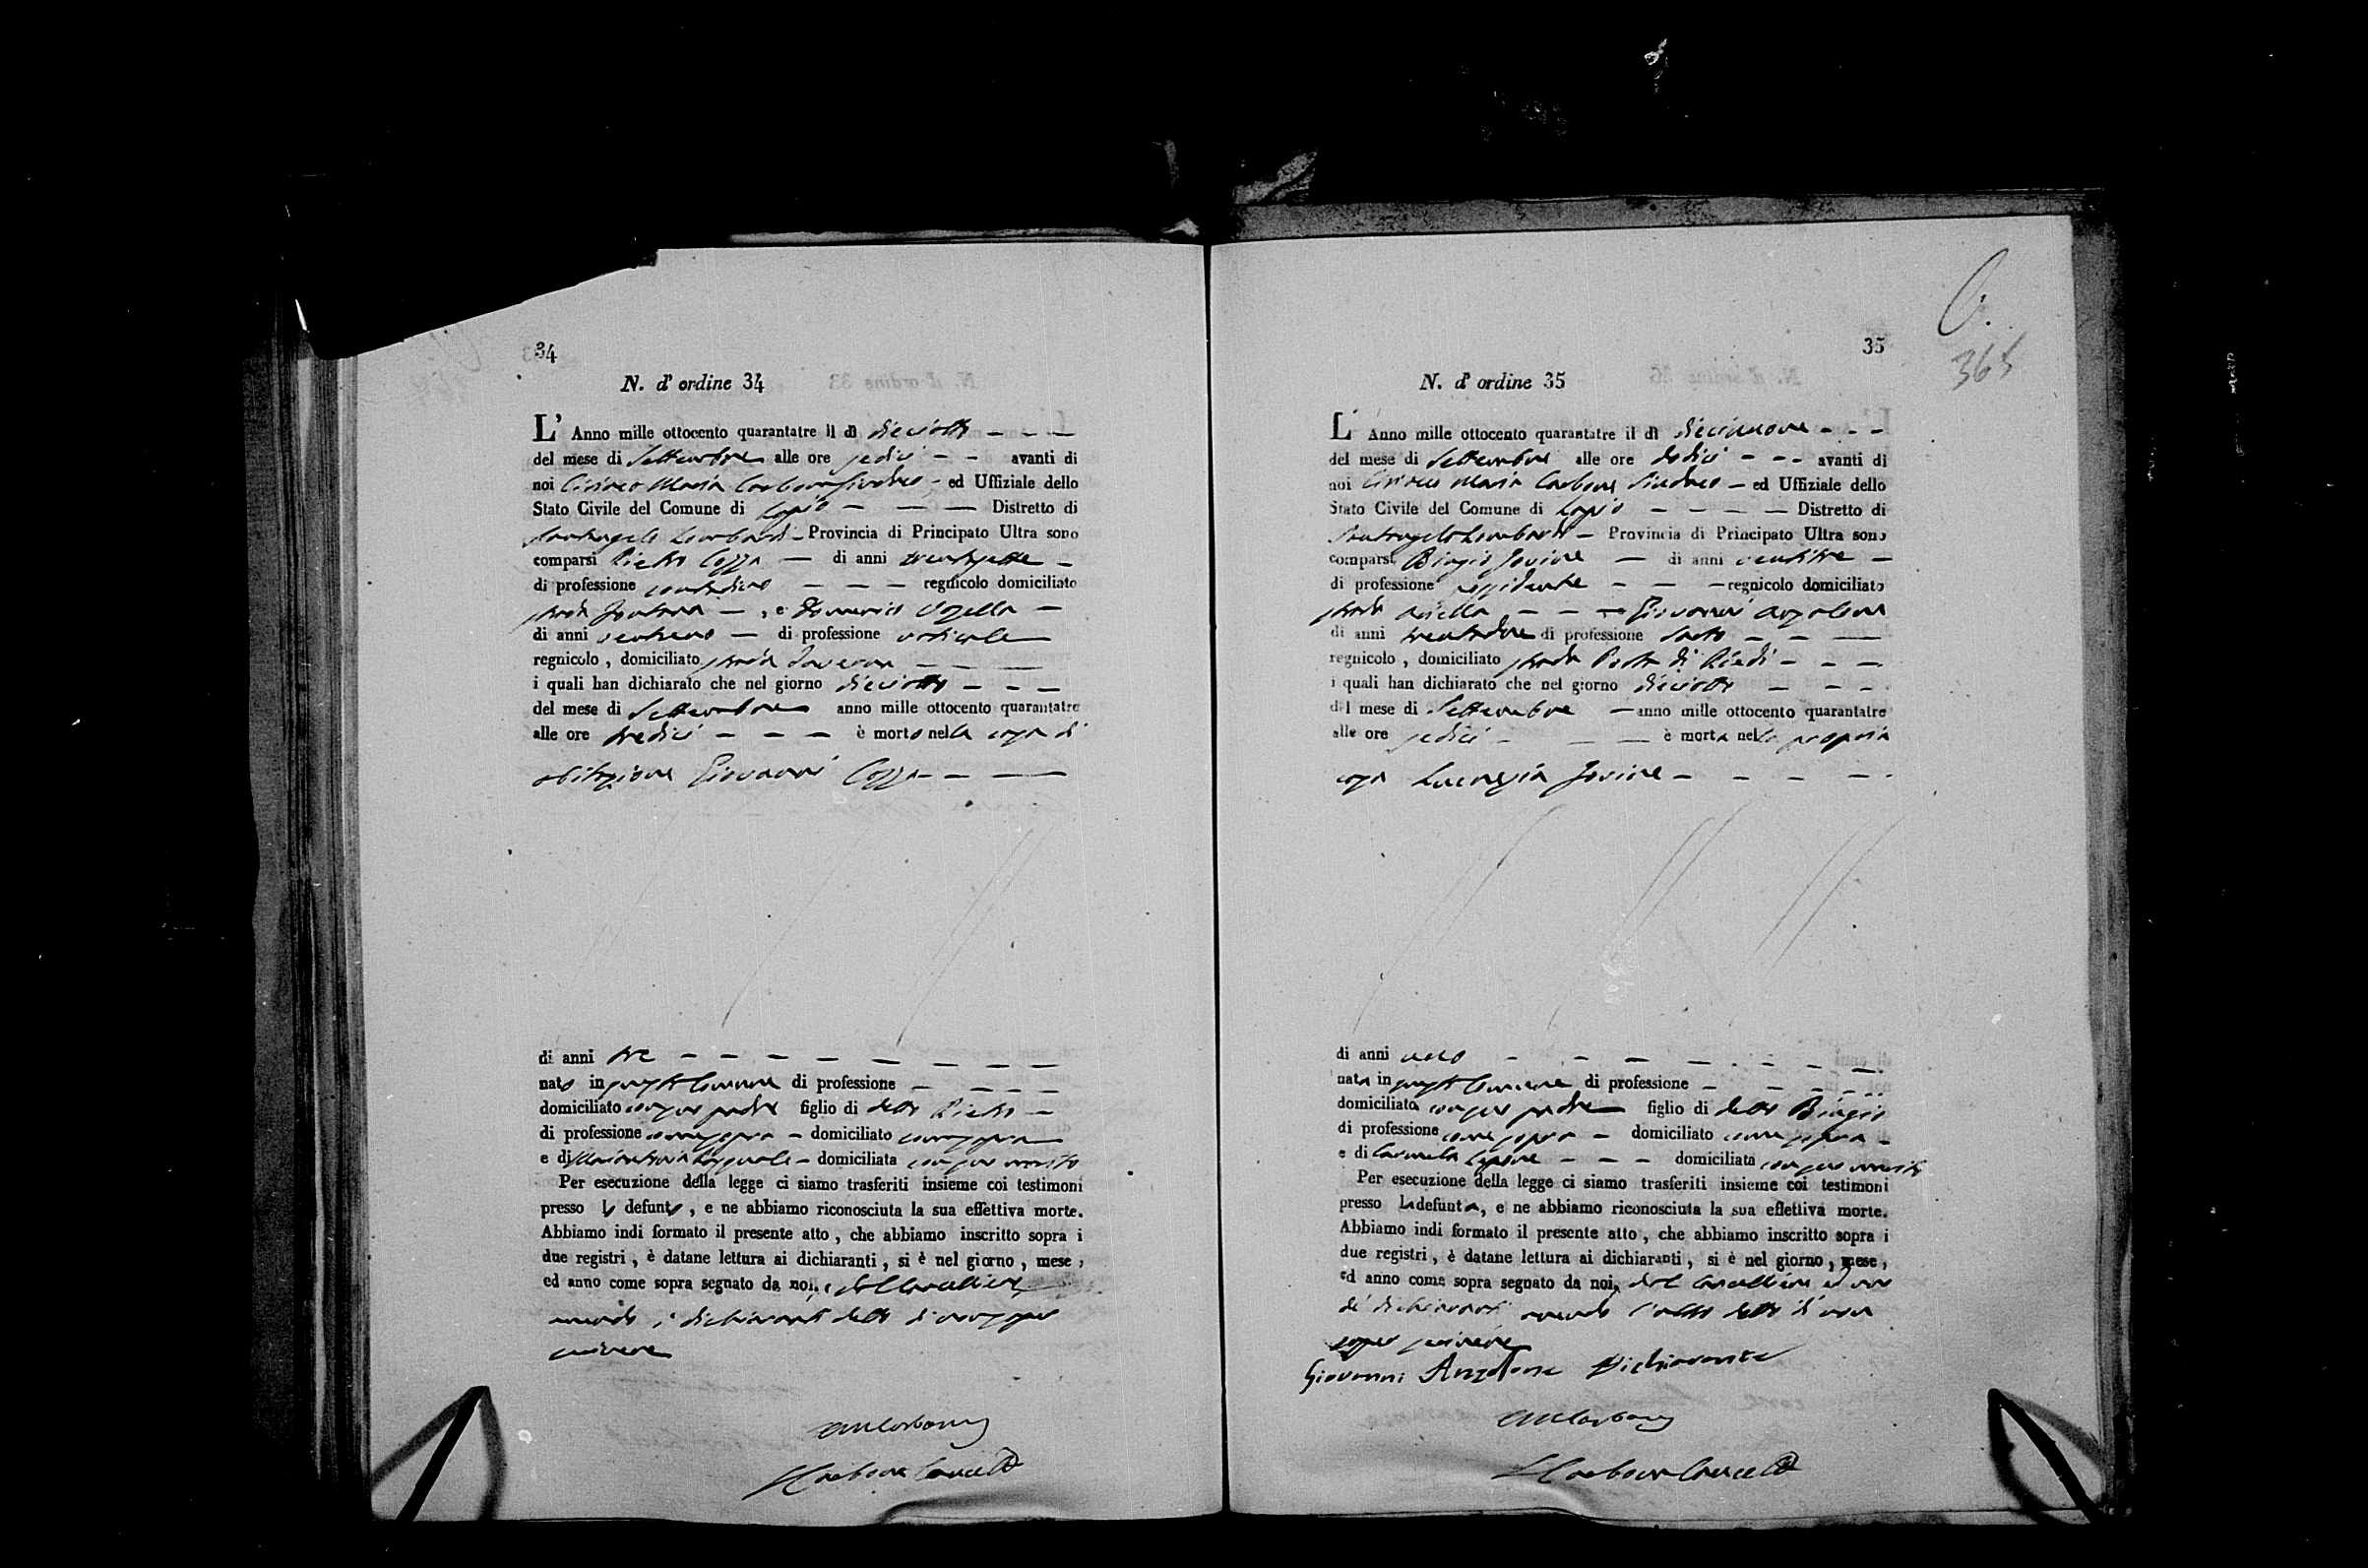 34
N. d' ordine 34
L' Anno mille ottocento quarantatre il dì dieciotto
del mese di Settembre alle ore sedici avanti di
noi Ciriaco Maria Carbone Sindaco ed Uffiziale dello
Stato Civile del Comune di Lapio Distretto di
Santangelo Lombardi Provincia di Principato Ultra sono
comparsi Pietro Cozza di anni trentasette
di professione contadino regnicolo domiciliato
strada Fontana , e Domenico
di anni ventuno di professione
regnicolo , domiciliato strada
i quali han dichiarato che nel giorno dieciotto
del mese di Settembre anno mille ottocento quarantatre
alle ore tredici è morto nella casa di
abitazione Giovanni Cozza
di anni tre
nato in questo Comune di professione
domiciliato con suo padre figlio di detto Pietro
di professione come sopra domiciliato come sopra
e di domiciliata con suo marito
Per esecuzione della legge ci siamo trasferiti insieme coi testimoni
presso lo defunto , e ne abbiamo riconosciuta la sua effettiva morte.
Abbiamo indi formato il presente atto , che abbiamo inscritto sopra i
due registri , è datane lettura ai dichiaranti , si è nel giorno , mese ,
ed anno come sopra segnato da noi, e dal Cancelliere
avendo i dichiaranti detto di non saper
scrivere
CM Carbone
Carbone Cancell
35
365
N. d' ordine 35
L' Anno mille ottocento quarantatre il dì diecinnove
del mese di Settembre alle ore dodici avanti di
noi Ciriaco Maria Carbone Sindaco ed Uffiziale dello
Stato Civile del Comune di Lapio Distretto di
Santangelo Lombardi Provincia di Principato Ultra sono
comparsi Biagio Jovine di anni ventitre
di professione regnicolo domiciliato
strada Giovanni Anzalone
di anni trentadue di professione Sarto
regnicolo , domiciliato strada Porta di Piedi
i quali han dichiarato che nel giorno dieciotto
del mese di Settembre anno mille ottocento quarantatre
alle ore sedici è morta nella propria
casa Lucrezia Jovine
di anni uno
nata in questo Comune di professione
domiciliata con suo padre figlio di detto Biagio
di professione come sopra domiciliato come sopra
e di Carmela domiciliata con suo marito
Per esecuzione della legge ci siamo trasferiti insieme coi testimoni
presso la defunta, e ne abbiamo riconosciuta la sua effettiva morte.
Abbiamo indi formato il presente atto , che abbiamo inscritto sopra i
due registri , è datane lettura ai dichiaranti , si è nel giorno , mese ,
ed anno come sopra segnato da noi, dal Cancelliere ed uno
de' dichiaranti avendo l'altro detto di non
saper scrivere
Giovanni Anzalone Dichiarante
CM Carbone
Carbone Cancell